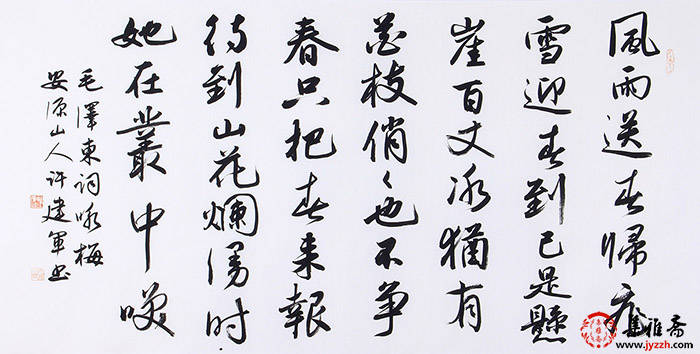 風雨送春歸飛
雪迎春到已是懸
崖百丈冰猶有
花枝俏々也不争
春只把春来報
待到山花爛漫时
她在叢中咲
毛澤東词咏梅
安源山人许建軍书
集雅斋
www.jyzzh.com